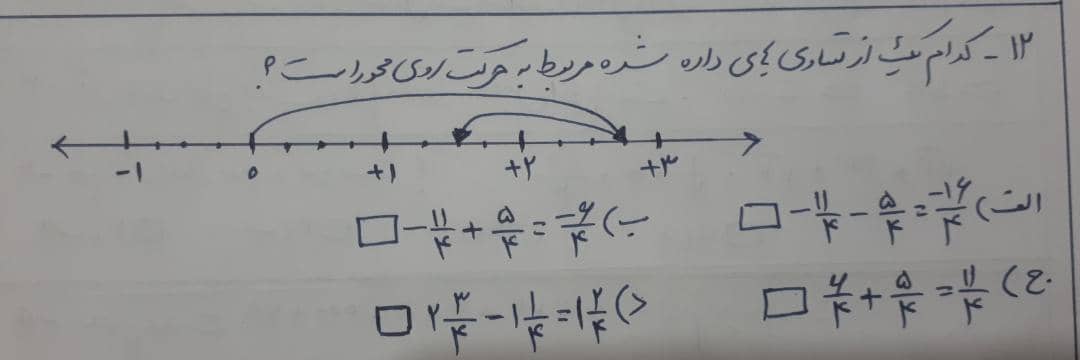 ۱۲ - کدام یک از تساوی های داده شده مربوط به حرکت روی محور است؟
-۱ ۰ +۱ +۲ +۳
الف) -۱۱/۴ - ۵/۴ = -۱۶/۴ ب) -۱۱/۴ + ۵/۴ = -۶/۴
ج) ۶/۴ + ۵/۴ = ۱۱/۴ د) ۲ ۳/۴ - ۱ ۱/۴ = ۱ ۲/۴